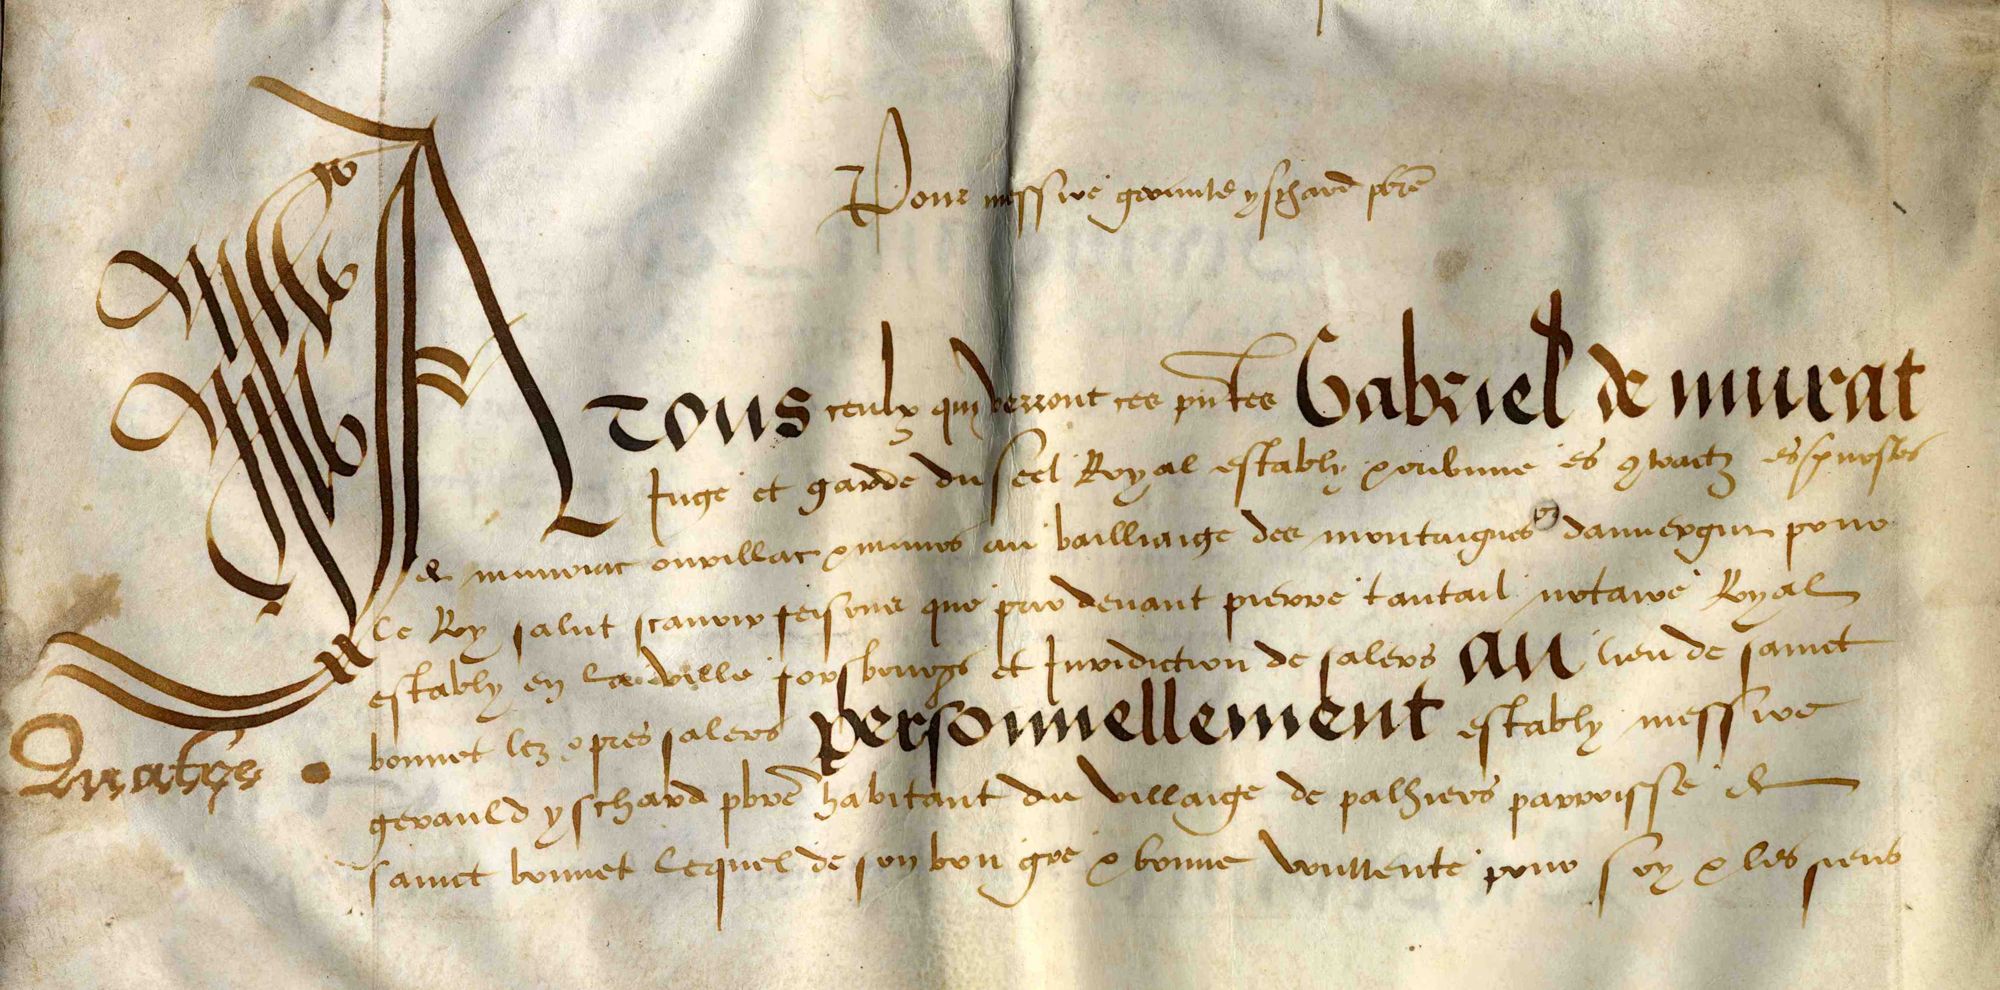 Pour messire gerauld yschard pbre
A Tous ceulx qui verront ces pntes Gabriel de murat
Juge et garde du seel Royal estably et ordonne es contractz es prevostes
de mauriac ourilhac et mauris au bailliaige des montaignes dauvergne pour
le Roy salut scavoir faisons que par devant pierre tantail notaire Royal
estably en la ville forsbourgs et Juridiction de salers AU lieu de sainct
bonnet lez et pres salers personnellement estably messire
gerauld yschard pbre habitant du villaige de palhiers parroisse de
Quatre
sainct bonnet lequel de son bon gre et bonne voullente pour soy et les siens